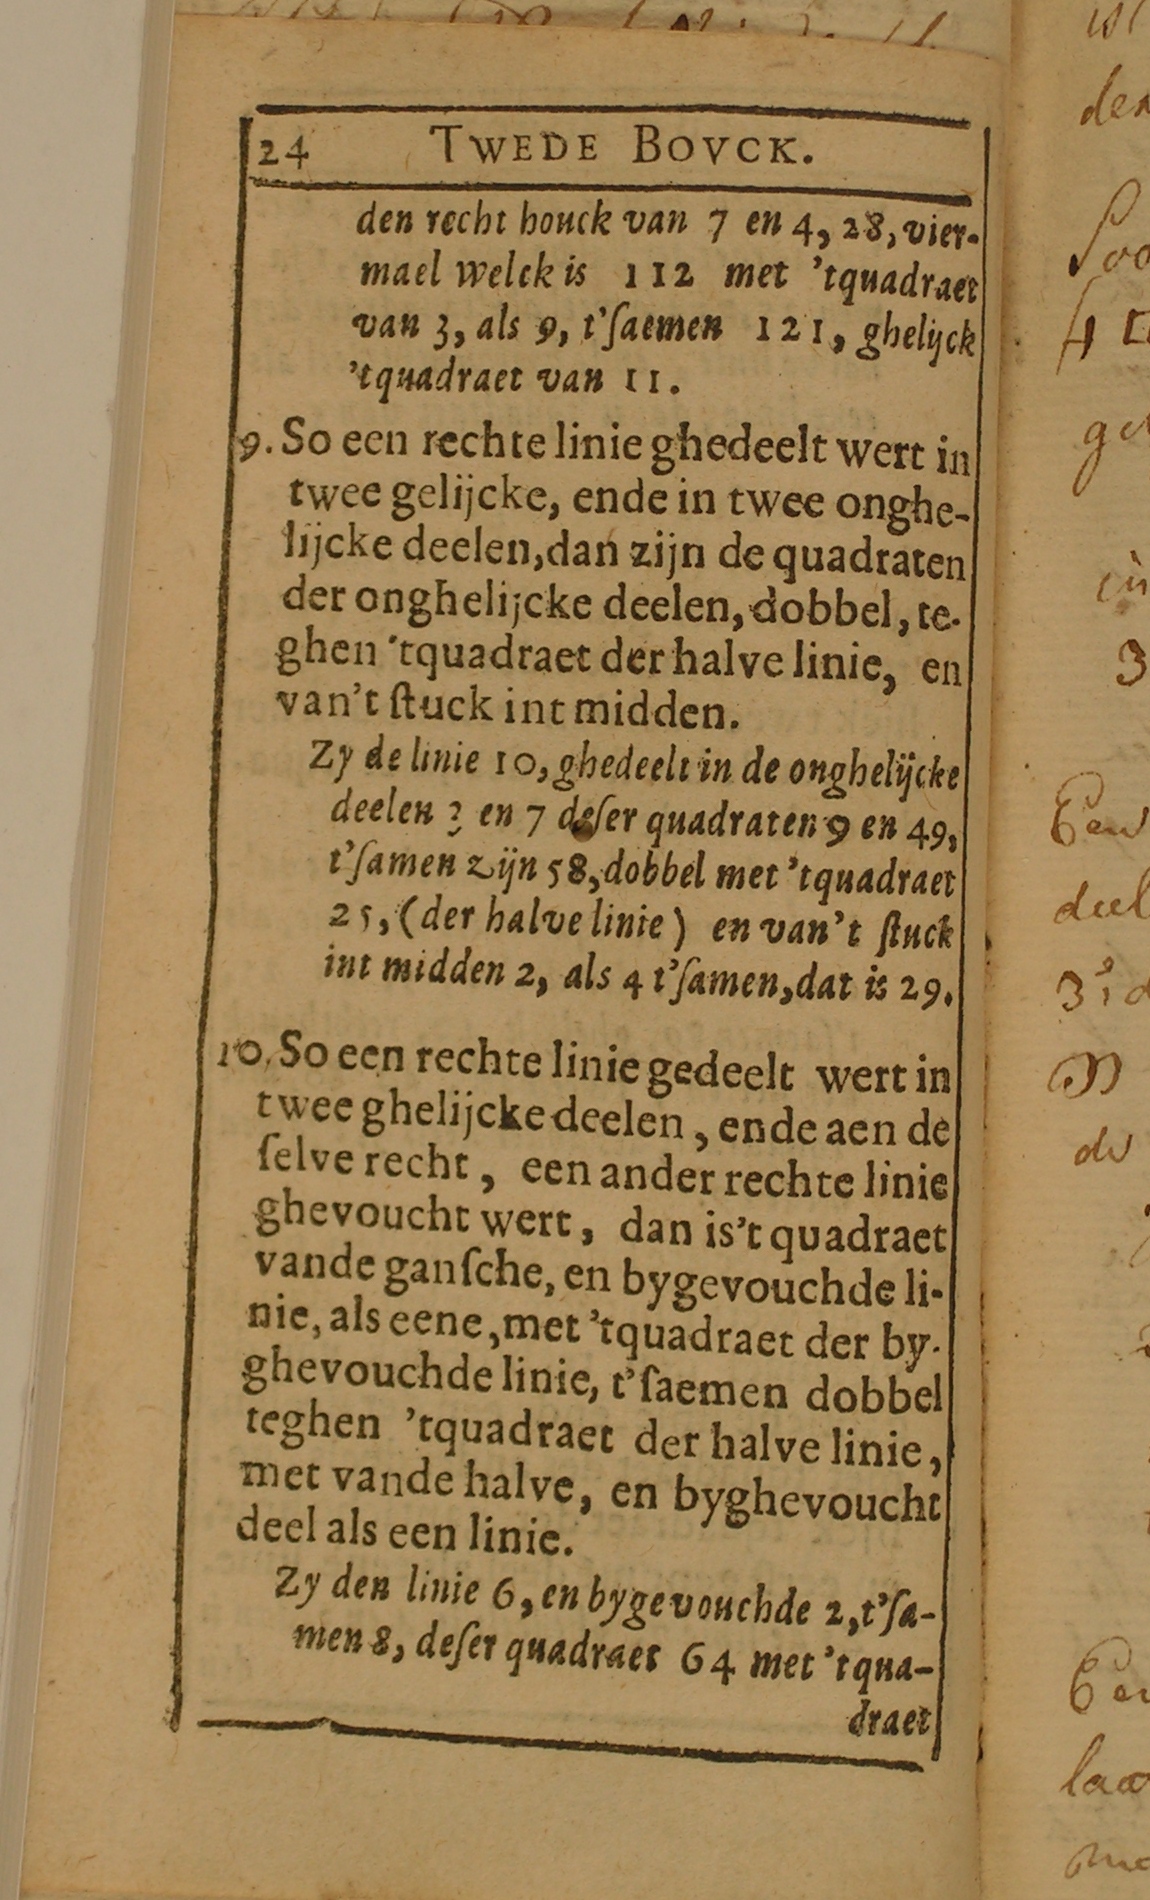 24 TWEDE BOVCK.
den recht houck van 7 en 4, 28, vier-
mael welck is 112 met 'tquadraet
van 3, als 9, t'ſaemen 121, ghelijck
'tquadraet van 11.
9. So een rechte linie ghedeelt wert in
twee gelijcke, ende in twee onghe-
lijcke deelen, dan zijn de quadraten
der onghelijcke deelen, dobbel, te-
ghen 'tquadraet der halve linie, en
van't ſtuck int midden.
Zy de linie 10, ghedeelt in de onghelijcke
deelen 3 en 7 deſer quadraten 9 en 49,
t'ſamen zijn 58, dobbel met 'tquadraet
25, (der halve linie) en van't ſtuck
int midden 2, als 4 t'ſamen, dat is 29.
10. So een rechte linie gedeelt wert in
twee ghelijcke deelen, ende aen de
ſelve recht, een ander rechte linie
ghevoucht wert, dan is't quadraet
vande ganſche, en bygevouchde li-
nie, als eene, met 'tquadraet der by-
ghevouchde linie, t'ſaemen dobbel
teghen 'tquadraet der halve linie,
met vande halve, en byghevoucht
deel als een linie.
Zy den linie 6, en bygevouchde 2, t'ſa-
men 8, deſer quadraet 64 met 'tqua-
draet